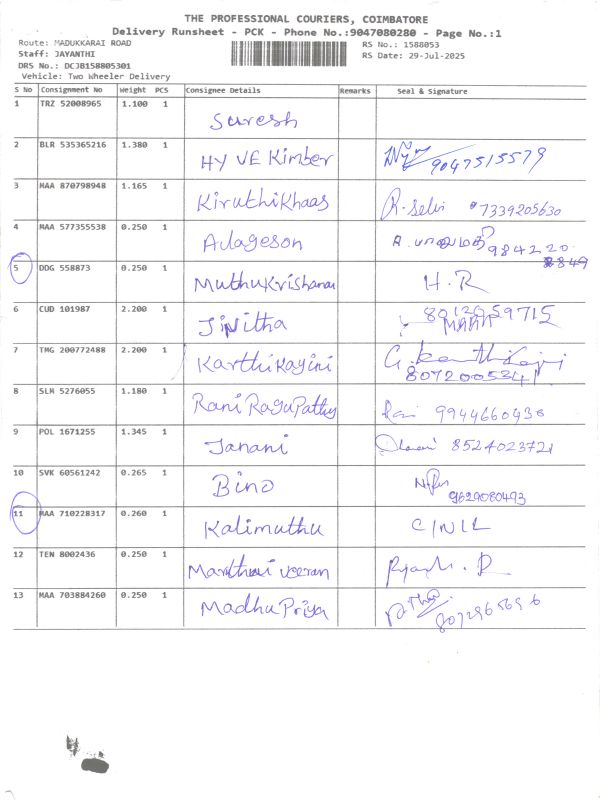 THE PROFESSIONAL COURIERS, COIMBATORE
Delivery Runsheet - PCK - Phone No.:9047080280 - Page No.:1
Route: MADUKKARAI ROAD
RS No.: 1588053
Staff: JAYANTHI
RS Date: 29-Jul-2025
DRS No.: DCJB158805301
Vehicle: Two Wheeler Delivery
S No Consignment No Weight PCS Consignee Details Remarks Seal & Signature
1 TRZ 52008965 1.100 1 Suresh
2 BLR 535365216 1.380 1 HY VE Kimber 9047515579
3 MAA 870798948 1.165 1 Kiruthikhaas R. Selvi 7339205630
4 MAA 577355538 0.250 1 Adageson 984220
849
5 DDG 558873 0.250 1 Muthukrishanan H.R
6 CUD 101987 2.200 1 Jinitha 8012059715
7 TMG 200772488 2.200 1 Karthikayini
8072005341
8 SLM 5276055 1.180 1 Rani Ragupathy 9944660430
9 POL 1671255 1.345 1 Janani 8524023721
10 SVK 60561242 0.265 1 Bino
9629080493
11 MAA 710228317 0.260 1 Kalimuthu
12 TEN 8002436 0.250 1 Maruthai veeran
13 MAA 703884260 0.250 1 Madhu Priya